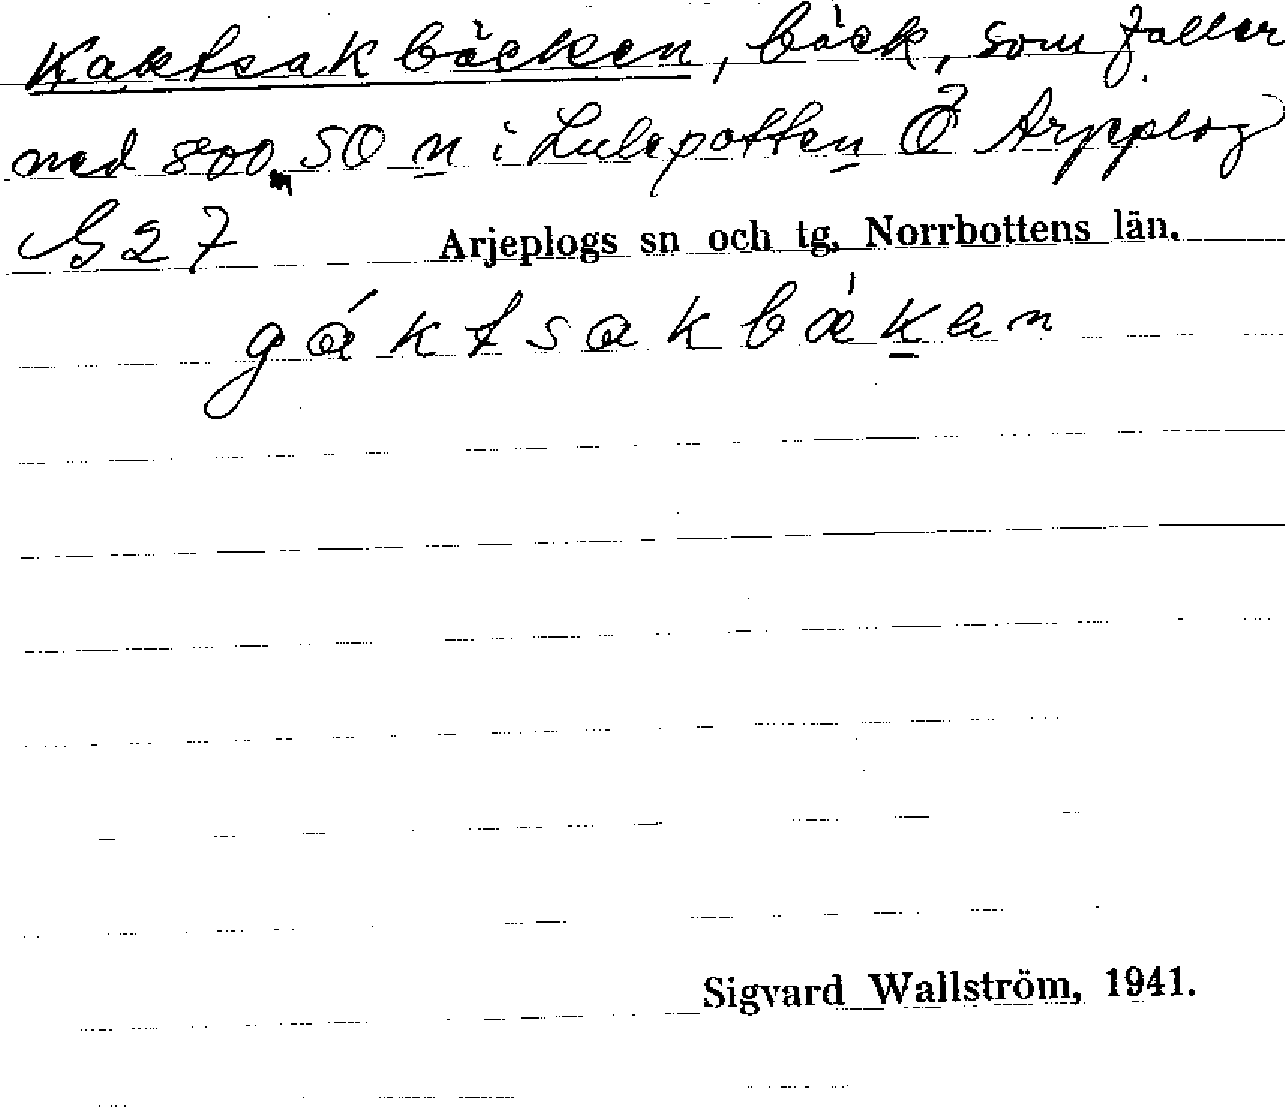 Kaktsakbäcken, bäck, som faller
ned 800 m SO n i Lulepotten Ö Arjeplog
G 27
Arjeplogs sn och tg, Norrbottens län.
gáktsakbä̀kan
Sigvard Wallström, 1941.